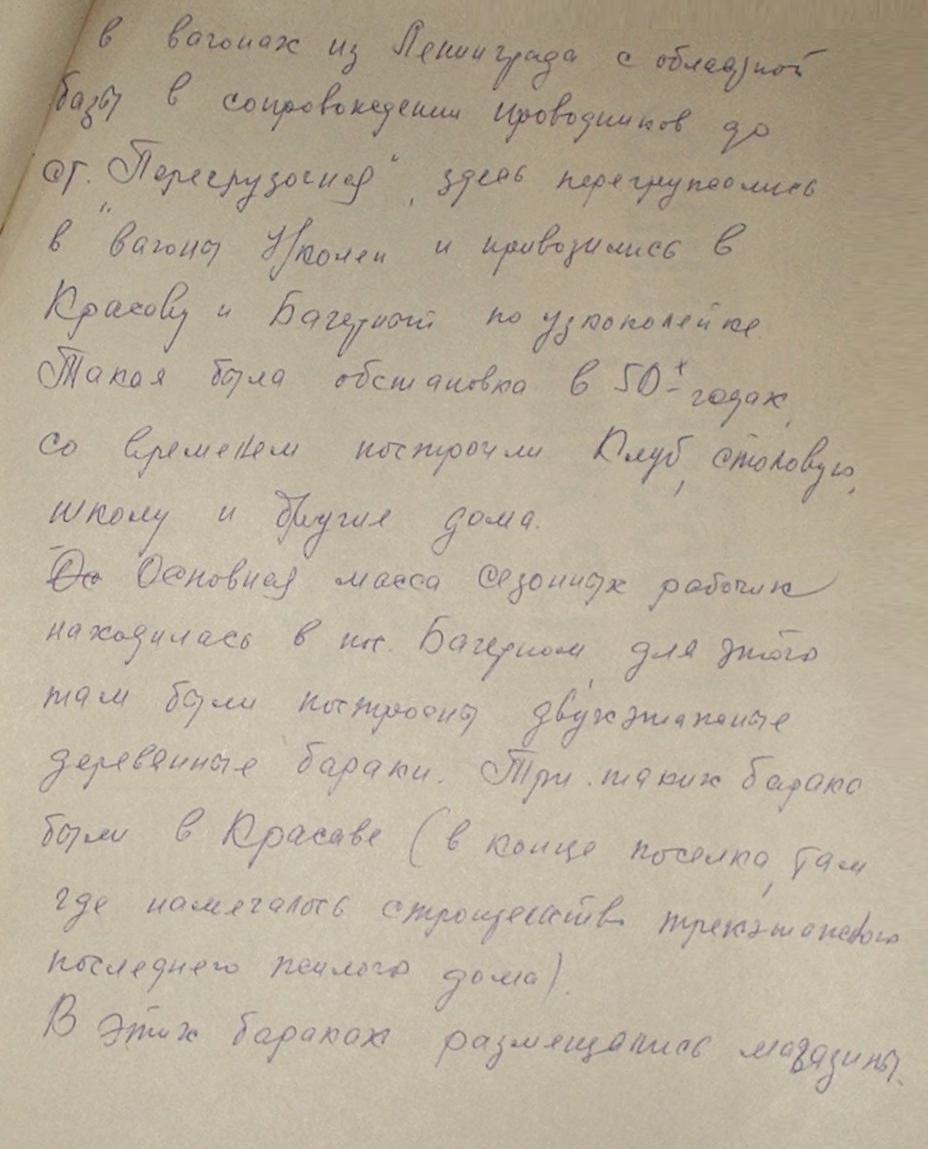 в вагонах из Ленинграда с областной
базы в сопровождении проводников до
ст. "Перегрузочная", здесь перегружались
в вагоны У/колеи и привозились в
Красаву и Багерный по узкоколейке
Такая была обстановка в 50-х годах,
со временем построили Клуб, столовую,
школу и другие дома.
Основная масса сезонных рабочих
находилась в пос. Багерном, для этого
там были построены двухэтажные
деревянные бараки. Три таких барака
были в Красаве (в конце поселка, там
где намечалось строительство трехэтажного
последнего жилого дома).
В этих бараках размещались магазины.